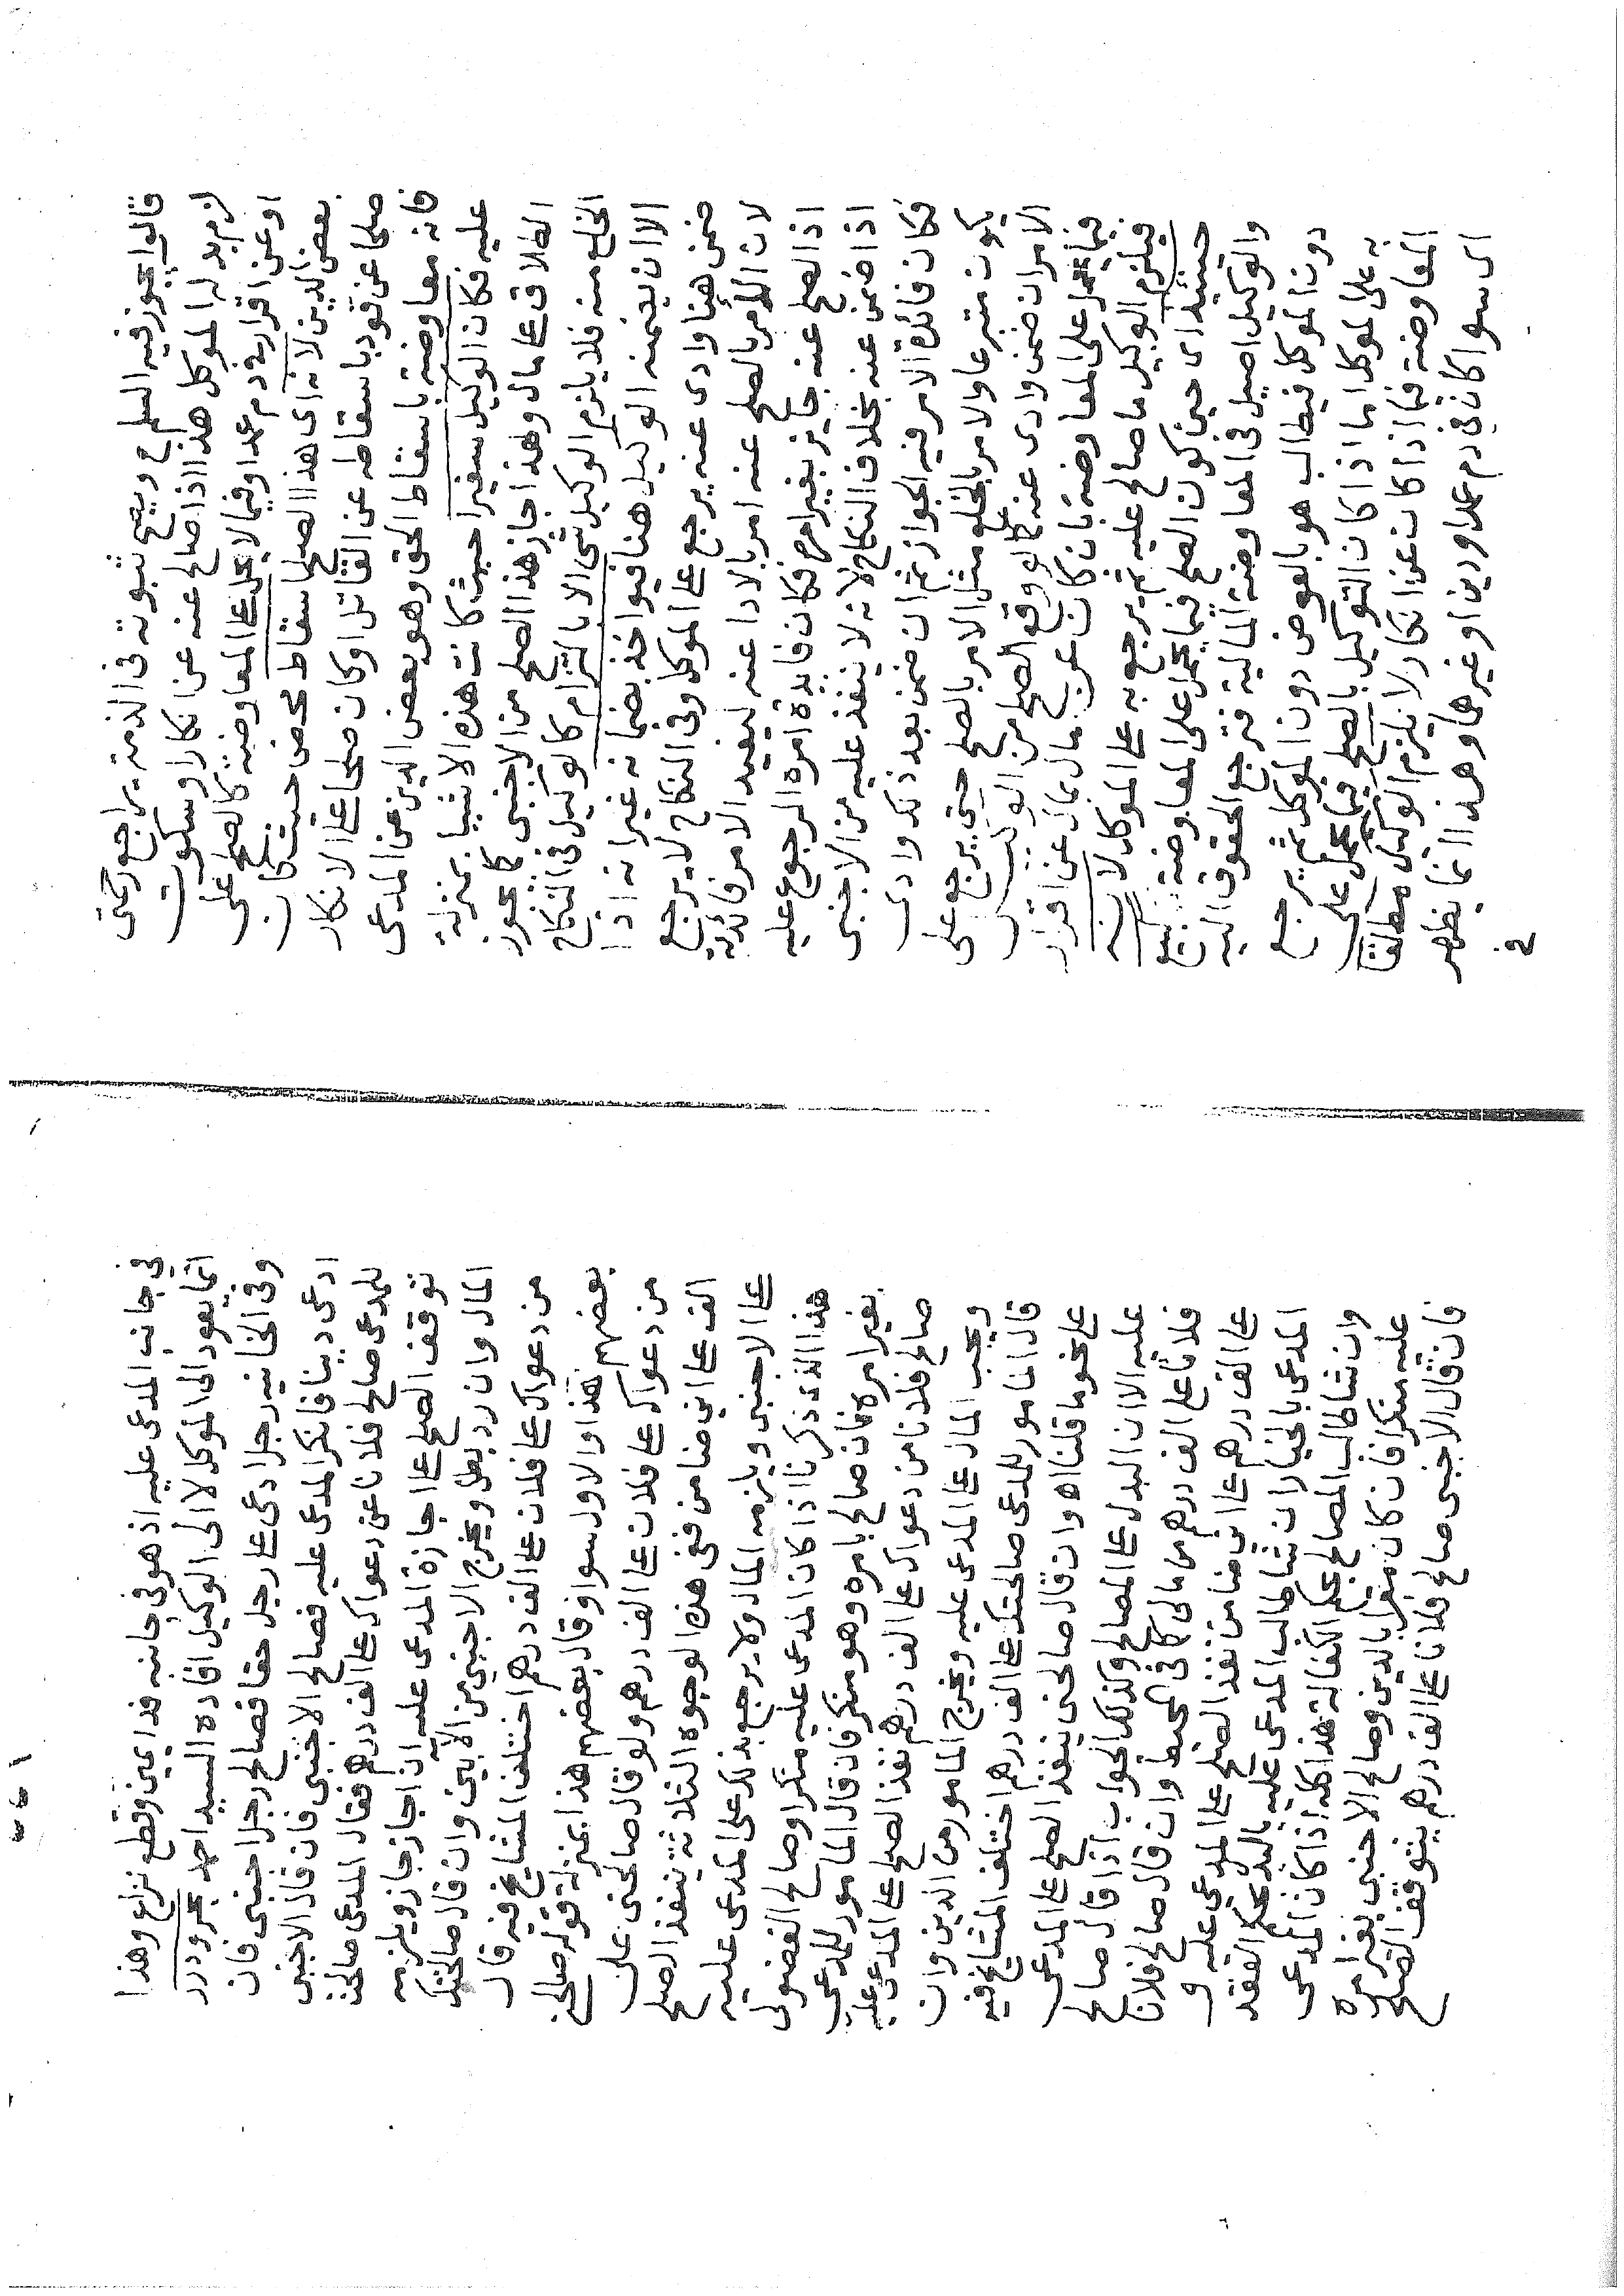 قالوا يجوز فيه السلم وبيع ثبوته فى الذمة يراجع رحمتى
لزم بدله الموكل هذا اذا صالح عنه عن انكار او سكوت
او عن اقرار فى دم عمد او فيما لا يحمل على المعاوضة كالصلح على
بعض الدين لانه اى هذا الصلح اسقاط محض حيث كان
صلحا عن قود باسقاطه عن القاتل او كان صلحا على الانكار
فانه معاوضة باسقاط الحق وهو بعض الدين عن المدعى
عليه فكان الوكيل سفيرا حيث كانت هذه الاشيا بمنزلة
الطلاق على مال وهذا جاز هذا الصلح من الاجنبى كما يجوز
الخلع منه فلا يلزم الوكيل شى الا بالتزام كالوكيل فى النكاح
الا ان يضمنه الوكيل هنا فيواخذ بضمانه غير انه اذا
ضمن هنا وادى عنه يرجع على الموكل وفى النكاح لا يرجع
لان الامر بالصلح عنه امر بالادا عنه ليفيد الامر فائدته
اذ الصلح عنه جايز بغير امره فكان فايدة امره الرجوع عليه
اذا ضمن عنه بخلاف النكاح لانه لا ينفذ عليه من الاجنبى
فكان فائدة الامر فيه الجواز ثم ان ضمن بعد ذلك وادى
يكون متبرعا والامر بالخلع مثل الامر بالصلح حتى يرجع على
الامر ان ضمن وادى عنه كما لو وقع الصلح من الوكيل
فيما يحمل على المعاوضة بان كان عن مال بمال عن اقرار
فيلزم الوكيل ما صالح عليه ثم يرجع به على الموكل لانه
حينئذ اى حين كون الصلح فيما يحمل على المعاوضة بيع
والوكيل اصيل فى المعاوضة المالية فترجع الحقوق اليه
دون الموكل فيطالب هو بالعوض دون الموكل ثم يرجع
به على الموكل اما اذا كان التوكيل بالصلح فيما يحمل على
المعاوضة فيما اذا كان عن انكار لا يلزم الوكيل مطلقا
اى سوا كان فى دم عمد او دين او غيرهما وهذا انما يظهر
فى جانب المدعى عليه اذ هو فى جانبه فدا يمين وقطع نزاع وهذا
انما يعود الى الموكل لا الى الوكيل افاده السيد احمد بحر ودرر
وفى الخانيه رجل ادعى على رجل حقا فصالح رجل اجنبى فان
ادعى دينا فانكر المدعى عليه فصالح الاجنبى فان قال الاجنبى
للمدعى صالح فلانا عن دعواك على الف درهم فقال المدعى صالحت
توقف الصلح على اجازة المدعى عليه ان اجاز جاز ويلزمه
المال وان رد بطل ويخرج الاجنبى من الابين وان قال صالحتك
من دعواك على فلان على الف درهم اختلف المشايخ فيه قال
بعضهم هذا والاول سوا وقال بعضهم هذا بمنزلة قوله صالحنى
من دعواك على فلان على الف درهم ولو قال صالحنى على
الف على انى ضامن ففى هذه الوجوه الثلاثة ينفذ الصلح
على الاجنبى ويلزمه المال ولا يرجع بذلك على المدعى عليه
هذا الذى ذكرنا اذا كان المدعى عليه منكرا وصالح الفضولى
بغير امره فان صالح بامره وهو منكر فان قال المامور للمدعى
صالح فلانا من دعواك على الف درهم نفذ الصلح على المدعى عليه
ويجب المال على المدعى عليه ويخرج المامور من الدين وان
قال المامور للمدعى صالحتك على الف درهم اختلف المشايخ فيه
على نحو ما قلناه وان قال صالحنى ينفذ الصلح على المدعى
عليه الا ان البدل على المصالح وكذلك الجواب اذا قال صالح
فلانا على الف درهم من مالى كما فى المحيط وان قال صالح فلان
على الف درهم على انى ضامن نفذ الصلح على المدعى عليه و
المدعى بالخيار ان شا طالب المدعى عليه بالبدل بحكم العقد
وان شا طالب المصالح بحكم الكفالة هذا كله اذا كان المدعى
عليه منكرا فان كان مقرا بالدين وصالح الاجنبى بغير امره
فان قال الاجنبى صالح فلانا على الف درهم يتوقف الصلح